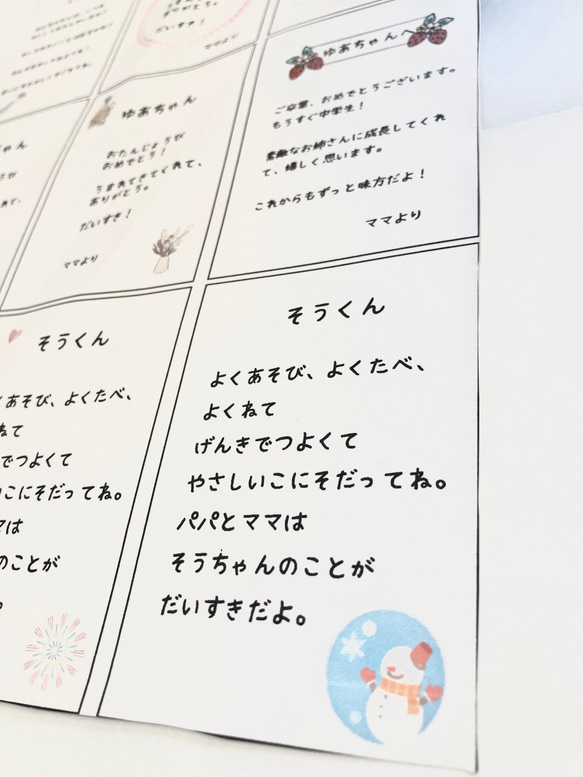 だいすき！
ママより
ゆあちゃんへ
ご卒業、おめでとうございます。
もうすぐ中学生！
素敵なお姉さんに成長してくれ
て、嬉しく思います。
これからもずっと味方だよ！
ママより
ゆあちゃん
おたんじょうび
おめでとう！
うまれてきてくれて、
ありがとう。
だいすき！
ママより
そうくん
あそび、よくたべ、
ねて
でつよくて
こにそだってね。
は
のことが
そうくん
よくあそび、よくたべ、
よくねて
げんきでつよくて
やさしいこにそだってね。
パパとママは
そうちゃんのことが
だいすきだよ。